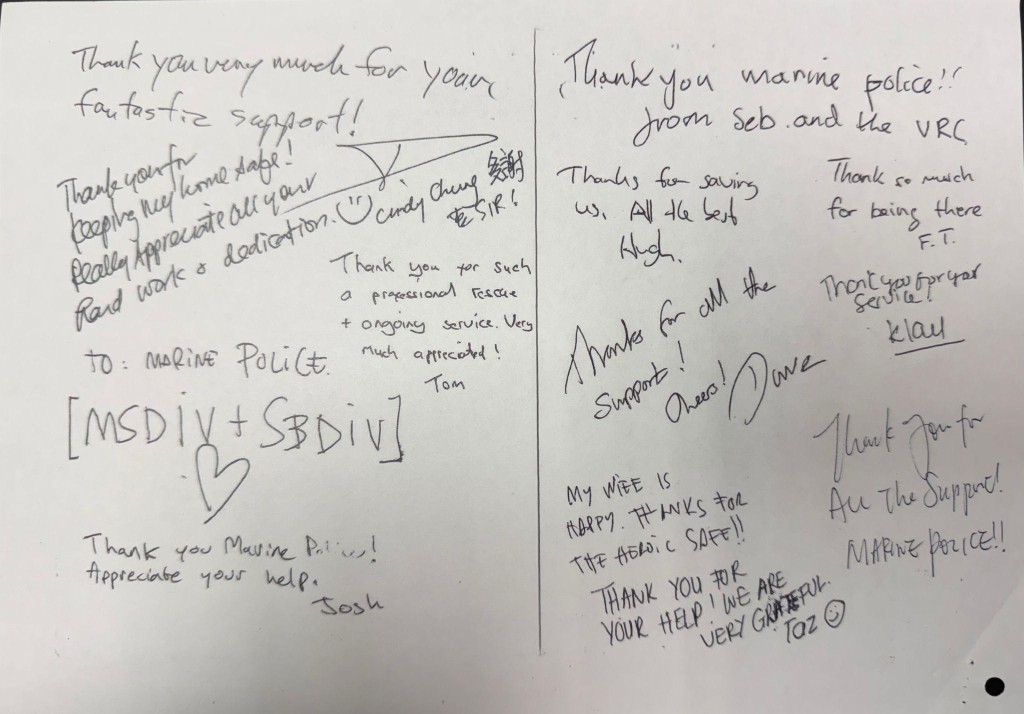 Thank you very much for your
fantastic support!
Thank you for
keeping my home safe!
Really Appreciate all your
hard work & dedication. Cindy Chung
SIR!
Thank you for such
a professional rescue
+ ongoing service. Very
much appreciated!
Tom
TO: MARINE POLICE.
[MSDIV + SBDIV]
Thank you Marine Police!
Appreciate your help.
Josh
Thank you marine police!!
from Seb. and the VRC
Thanks for saving
us. All the best
Hugh.
Thank so much
for being there
F.T.
Thank you for your
service!
Thanks for all the
support!
Cheers! Dave
MY WIFE IS
HAPPY. THANKS FOR
THE HEROIC SAFE!!
THANK YOU FOR
YOUR HELP! WE ARE
VERY GRATEFUL.
TAZ
Thank You for
All The Support!
MARINE POLICE!!